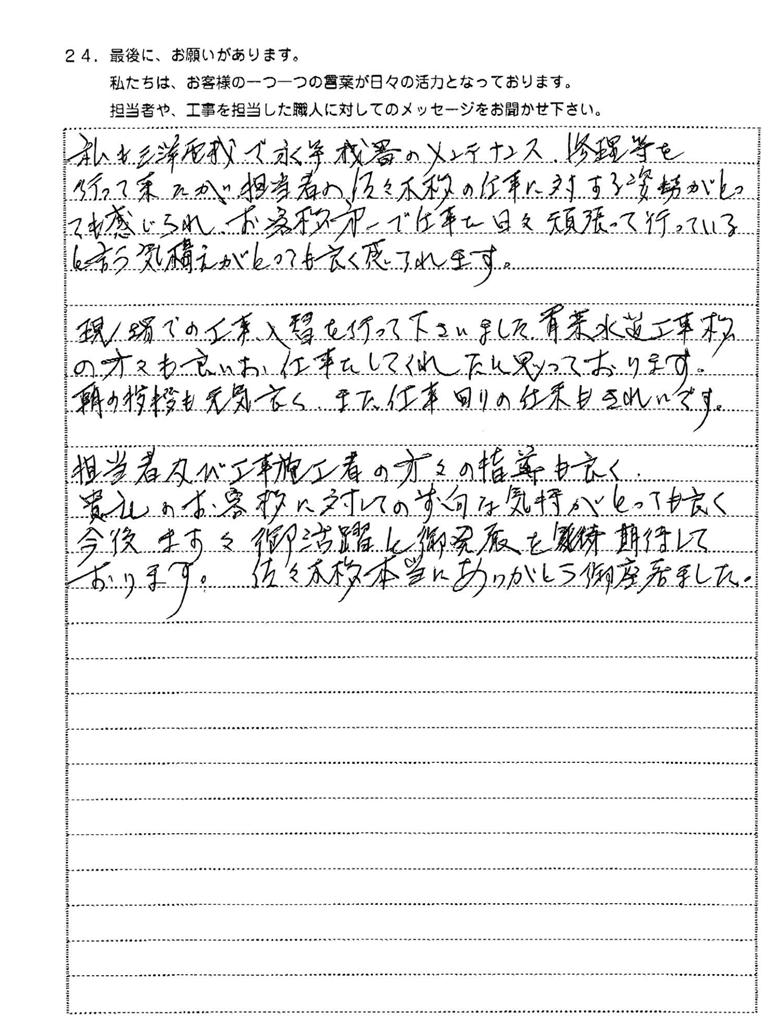 24. 最後に、お願いがあります。
私たちは、お客様の一つ一つの言葉が日々の活力となっております。
担当者や、工事を担当した職人に対してのメッセージをお聞かせ下さい。
私も三洋電機で永年機器のメンテナンス、修理等を
行って来たが、担当者の佐々木様の仕事に対する姿勢がとっ
ても感じられ、お客様第一で仕事を日々頑張って行っている
と言う気構えがとっても良く感じられます。
現場での工事入替を行って下さいました 水道工事様
の方々も良いお仕事をしてくれたと思っております。
朝の挨拶も元気良く、また仕事回りの仕末もきれいです。
担当者及び工事施工者の方々の指導も良く、
貴社のお客様に対しての前向な気持がとっても良く
今後ますます御活躍と御発展を 期待して
おります。 佐々木様本当にありがとう御座居ました。